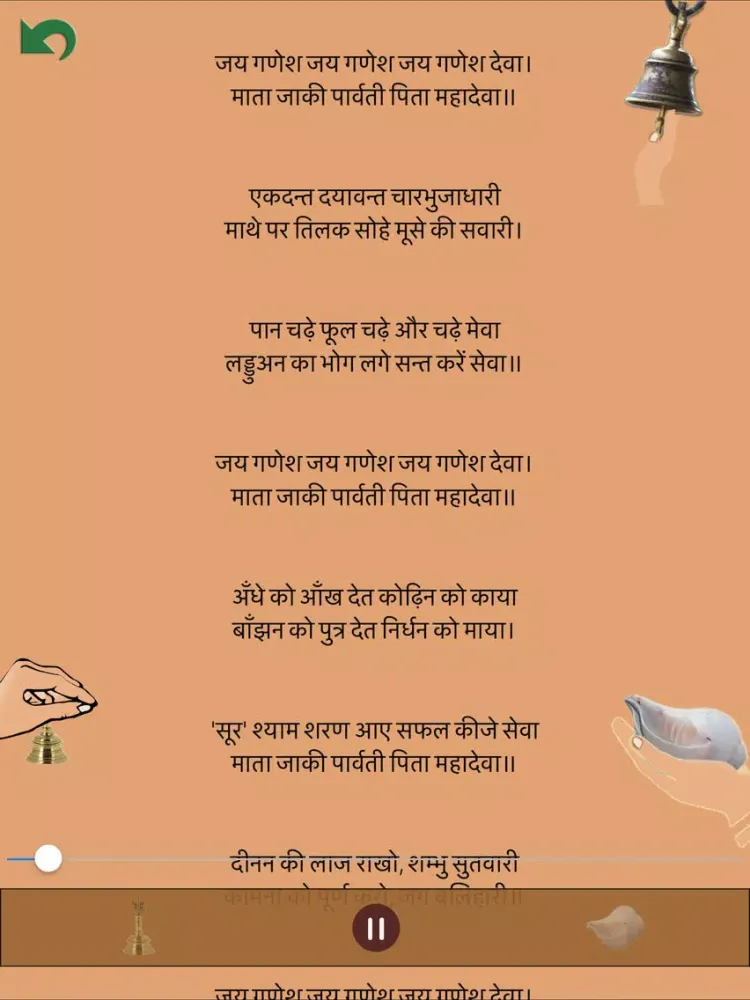 जय गणेश जय गणेश जय गणेश देवा।
माता जाकी पार्वती पिता महादेवा॥
एकदन्त दयावन्त चारभुजाधारी
माथे पर तिलक सोहे मूसे की सवारी।
पान चढ़े फूल चढ़े और चढ़े मेवा
लड्डुअन का भोग लगे सन्त करें सेवा॥
जय गणेश जय गणेश जय गणेश देवा।
माता जाकी पार्वती पिता महादेवा॥
अँधे को आँख देत कोढ़िन को काया
बाँझन को पुत्र देत निर्धन को माया।
'सूर' श्याम शरण आए सफल कीजे सेवा
माता जाकी पार्वती पिता महादेवा॥
दीनन की लाज राखो, शम्भु सुतवारी
कामना को पूर्ण करो, जग बलिहारी॥
जय गणेश जय गणेश जय गणेश देवा।